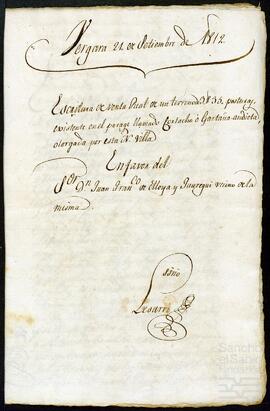 Vergara 21 de Setiembre de 1812.
Escritura de venta Real de un terreno de 35. posturas,
existente en el parage llamado
otorgada por esta N. Villa
En favor del
Sor. Dn. Juan Franco. de Elloya y Jauregui vecino de la
misma.
Sancho
el Sabio